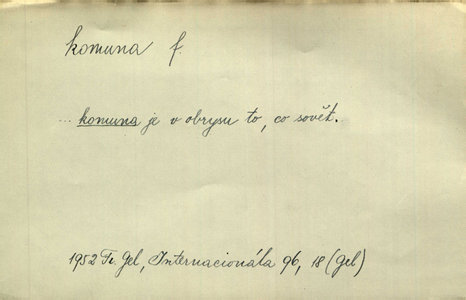 komuna f.
... komuna je v obrysu to, co sovět.
1952 Fr. Gel, Internacionála 96, 18 (Gel)